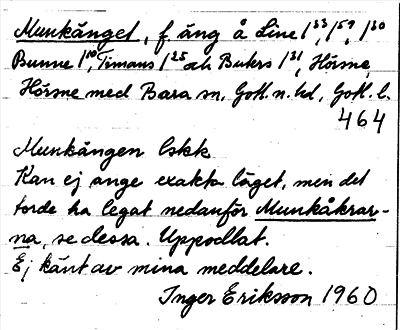 Munkänget, f äng å Line 1/33, 1/59, 1/30
Bunne 1/10, Timans 1/25 och Buters 1/31, Hörsne,
Hörsne med Bara sn, Gotl. n. hd, Gotl. l.
464
Munkängen lskk
Kan ej ange exakta läget, men det
torde ha legat nedanför Munkåkrar-
na, se dessa. Uppodlat.
Ej känt av mina meddelare.
Inger Eriksson 1960